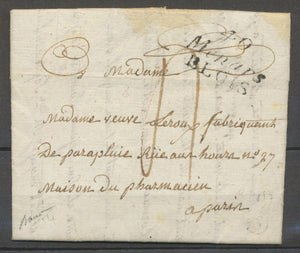 40
Menars
BLOIS
A Madame
Madame veuve Leroy fabriquant
De parapluie Rüe aux hours n° 27
Maison du pharmacien
a paris